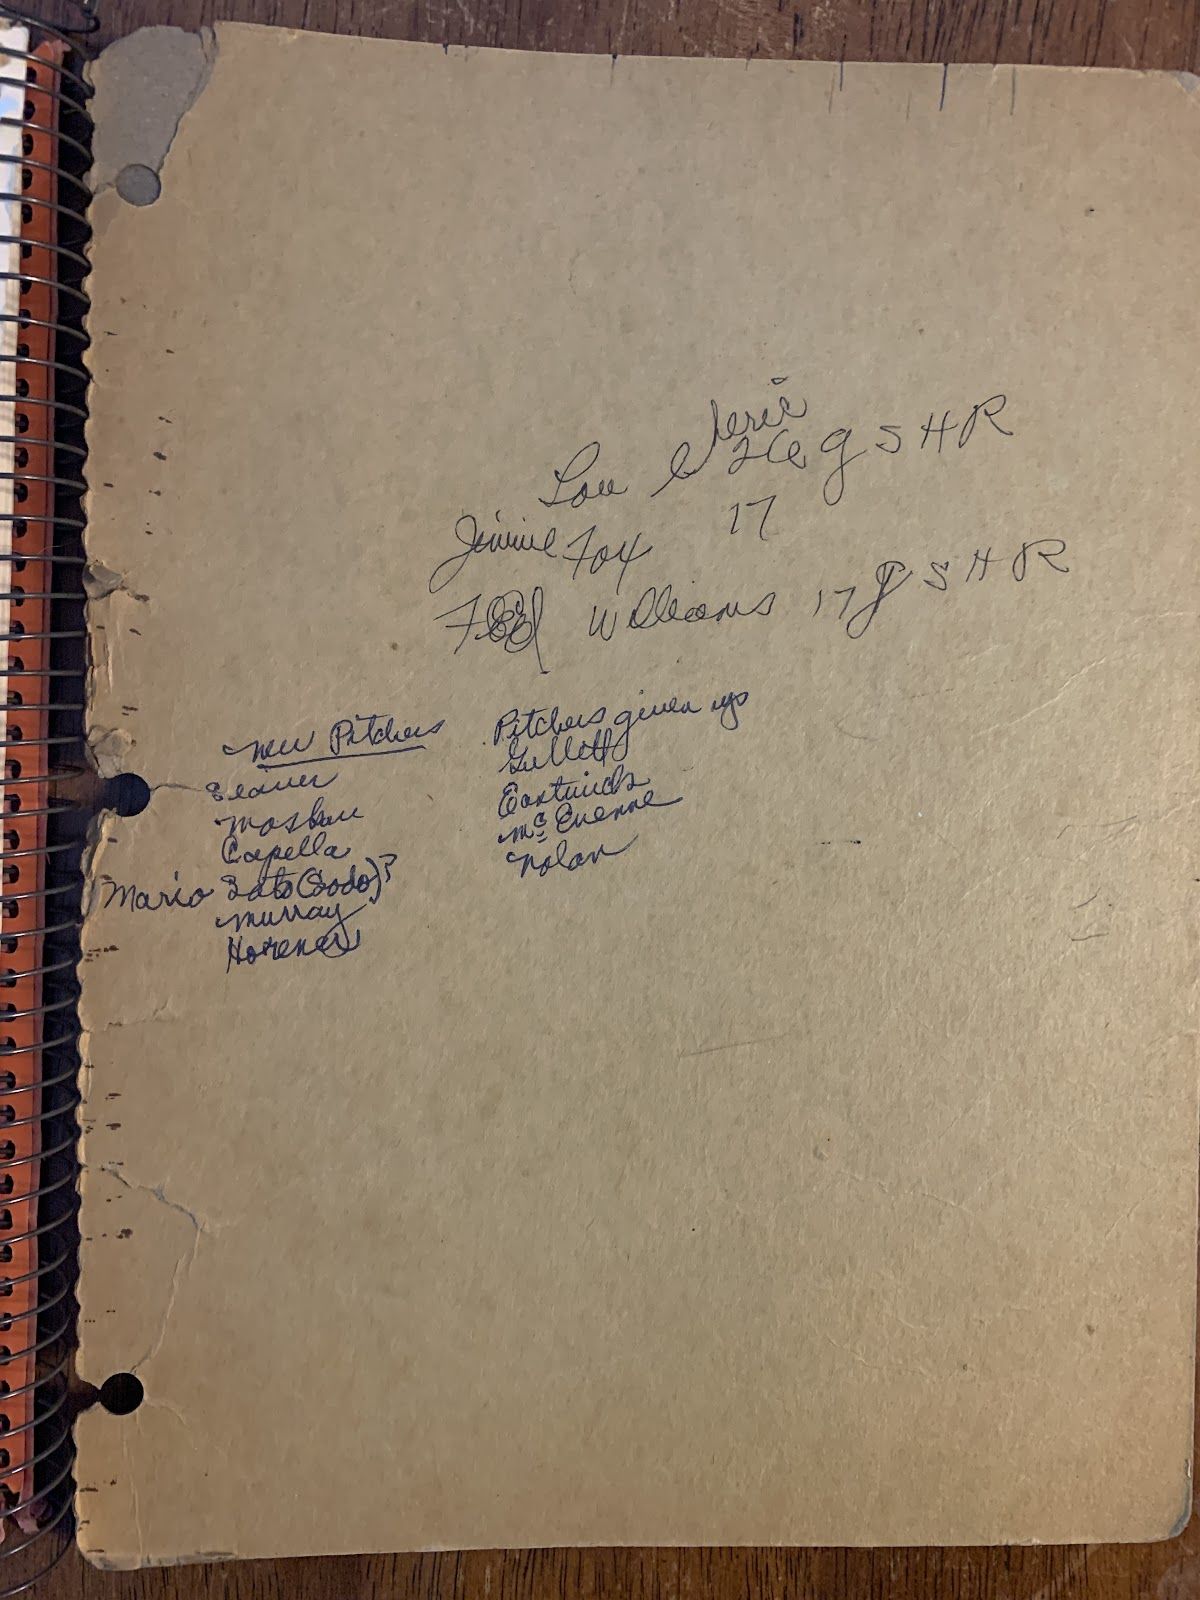 Lou Gherie
26 g S H R
Jimmie Fox 17
Ted Williams 17 g S H R
new Pitchers
Seaver
Moskau
Capella
Mario Soto (Sodo)?
Murray
Pitchers given up
Gullett
Eastwick
McEnenne
Nolan